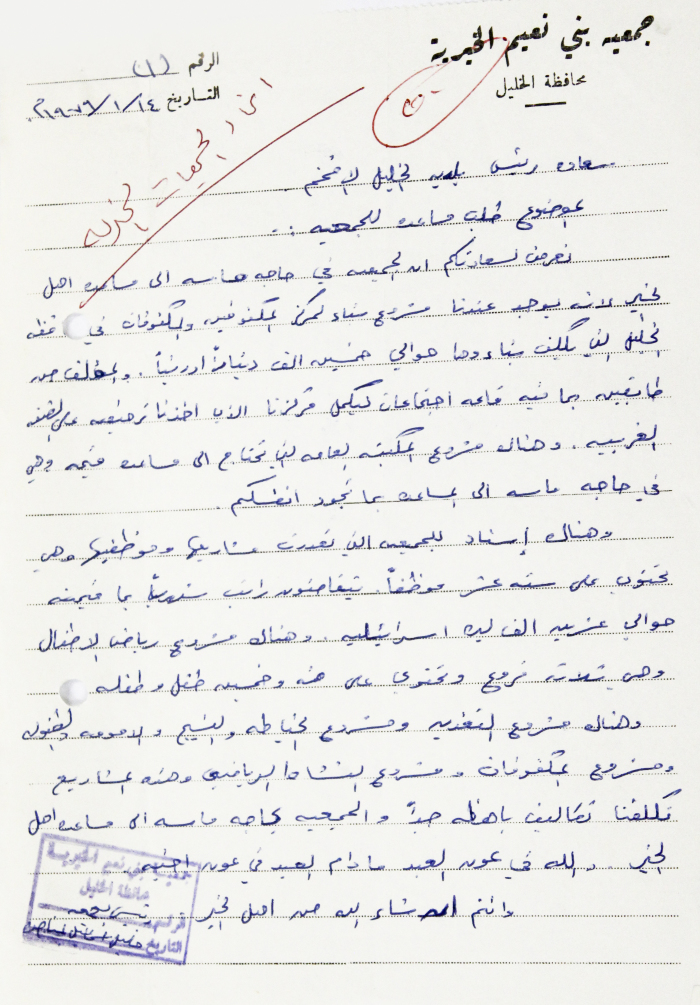 جمعيه بني نعيم الخيرية
محافظة الخليل
الرقم (١)
التاريخ ١٤/١/١٩٧٦م
اتحاد الجمعيات الخيريه
سعاده رئيس بلديه الخليل الافخم
الموضوع طلب مساعده للجمعيه
نعرض لسعادتكم ان الجمعيه في حاجه ماسه الى مساعده اهل
الخير لانه يوجد عندنا مشروع بناء لمركز المكفوفين والمكفوفات في
الخليل الذي يكلف بناء وحدا حوالي خمسين الف ديناراً اردنياً . والمؤلف من
طابقين بما فيه قاعه اجتماعات ليكمل مركزنا الذي اخذنا ترخيصه على الضفه
الغربيه . وهناك مشروع المكتبه العامه التي تحتاج الى مساعده قيمه وهي
في حاجه ماسه الى المساعده بما تجود انفسكم .
وهناك إسناد للجمعيه التي تعددت مشاريعها وموظفيها وهي
تحتوي على سته عشر موظفاً يتقاضون راتب شهرياً بما قيمته
حوالي عشرين الف ليره اسرائيليه . وهناك مشروع رياض الاطفال
وهي ثلاث فروع وتحتوي على مئه وخمسين طفل وطفله
وهناك مشروع التغذيه ومشروع الخياطه والنسيج والامومه والطفوله
ومشروع المكفوفات ومشروع النشاط الرياضي وهذه المشاريع
تكلفنا تكاليف باهظه جداً والجمعيه بحاجه ماسه الى مساعده اهل
الخير . والله في عون العبد ما دام العبد في عون اخيه
وانتم ان شاء الله من اهل الخير
رئيس الجمعيه
جمعية بني نعيم الخيرية
محافظة الخليل
الرقم
التاريخ